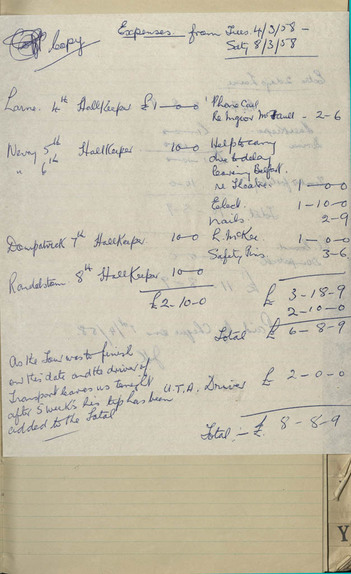 Copy
Expenses from Tues. 4/3/58 -
Sat. 8/3/58
Larne. 4th HallKeeper £1-0-0
Phone Call
Re Ingoor - 2-6
Newry 5th HallKeeper 10-0
" 6th
Help to carry
due to delay
leaving Belfast.
re Theatre 1-0-0
Elect. 1-10-0
nails 2-9
Downpatrick 7th HallKeeper 10-0
L. McKee. 1-0-0
Safety Pins 3-6
Randalstown 8th HallKeeper 10-0
£2-10-0
£ 3-18-9
2-10-0
Total £ 6-8-9
As the Tour was to finish
on this date and the driver of
Transport leaves us tonight
after 5 weeks his tip has been
added to the Total
U.T.A. Driver £ 2-0-0
Total :- £ 8-8-9
Y